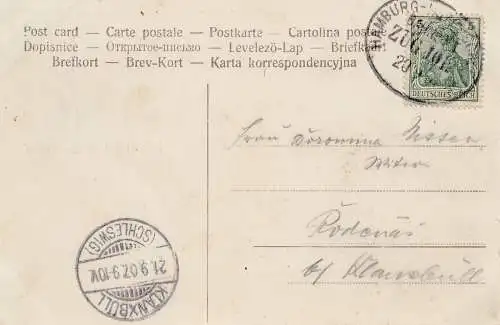 Post card — Carte postale — Postkarte — Cartolina postale —
Dopisnice — Открытое-письмо — Levelezö-Lap — Briefkaart
Brefkort — Brev-Kort — Karta korrespondencyjna
HAMBURG-
ZUG 107
DEUTSCHES REICH
Frau
Rodenäs
b/ Klanxbüll
KLANXBÜLL
21.9.07.9-10V.
(SCHLESWIG)